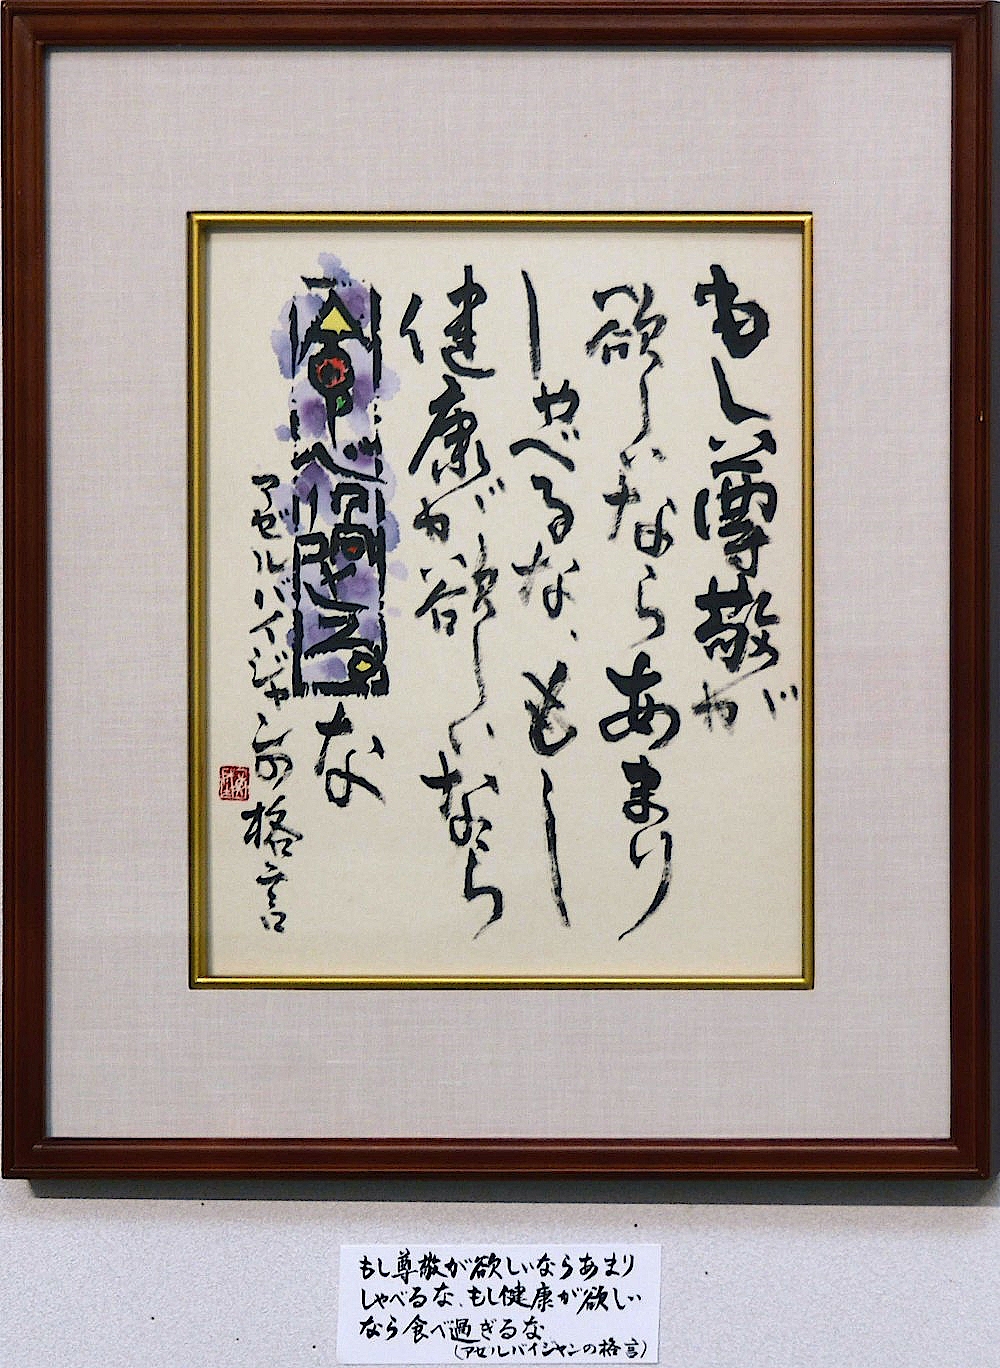 もし尊敬が
欲しいならあまり
しゃべるな、もし
健康が欲しいなら
食べ過ぎるな
アゼルバイジャンの格言
もし尊敬が欲しいならあまり
しゃべるな、もし健康が欲しい
なら食べ過ぎるな
(アゼルバイジャンの格言)